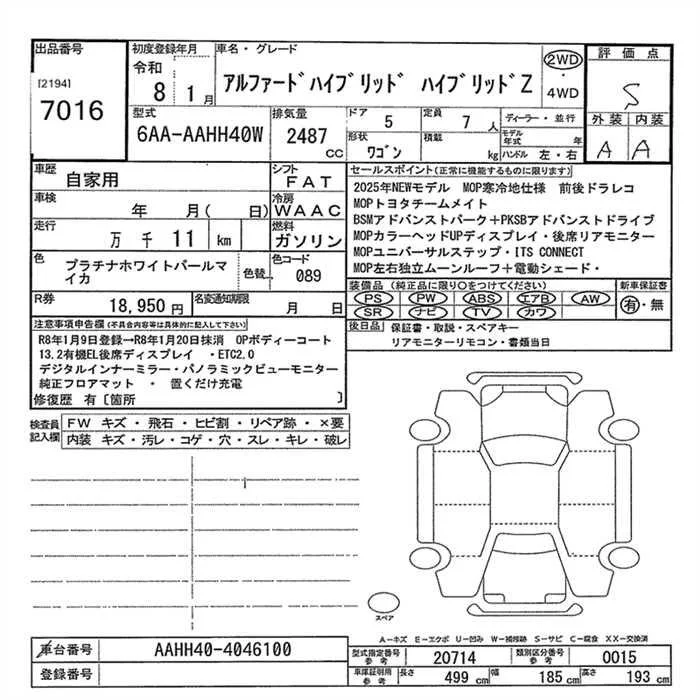 出品番号
[2194]
7016
初度登録年月
令和
8 1月
車名・グレード
アルファードハイブリッド ハイブリッドZ
2WD
・
4WD
評価点
S
外装 内装
A A
型式
6AA-AAHH40W
排気量
2487
cc
ドア 5
定員 7 人
形状 ワゴン
積載 kg
ディーラー・並行
モデル年式 年
ハンドル 左・右
車歴
自家用
シフト
FAT
車検
年 月( 日)
冷房
WAAC
走行
万 千 11 km
燃料
ガソリン
色
プラチナホワイトパールマイカ
色替
色コード
089
R券
18,950 円
名変通知期限
月 日
セールスポイント(正常に機能するものに限ります)
2025年NEWモデル MOP寒冷地仕様 前後ドラレコ
MOPトヨタチームメイト
BSMアドバンストパーク+PKSBアドバンストドライブ
MOPカラーヘッドUPディスプレイ・後席リアモニター
MOPユニバーサルステップ・ITS CONNECT
MOP左右独立ムーンルーフ+電動シェード・
装備品(純正品に限り○をつけてください)
PS PW ABS エアB AW
SR ナビ TV カワ
新車保証書
有・無
後日品
保証書・取説・スペアキー
リアモニターリモコン・書類当日
注意事項申告欄(不具合内容等は具体的に記入して下さい)
R8年1月9日登録→R8年1月20日抹消 OPボディーコート
13.2有機EL後席ディスプレイ ・ETC2.0
デジタルインナーミラー・パノラミックビューモニター
純正フロアマット ・ 置くだけ充電
修復歴 有[箇所 ]
検査員記入欄
FW キズ・飛石・ヒビ割・リペア跡・×要
内装 キズ・汚レ・コゲ・穴・スレ・キレ・破レ
スペア
A-キズ E-エクボ U-凹み W-補修跡 S-サビ C-腐食 XX-交換済
車台番号
AAHH40-4046100
登録番号
型式指定番号参考
20714
類別区分番号参考
0015
車庫証明用参考
長さ 499 cm
幅 185 cm
高さ 193 cm